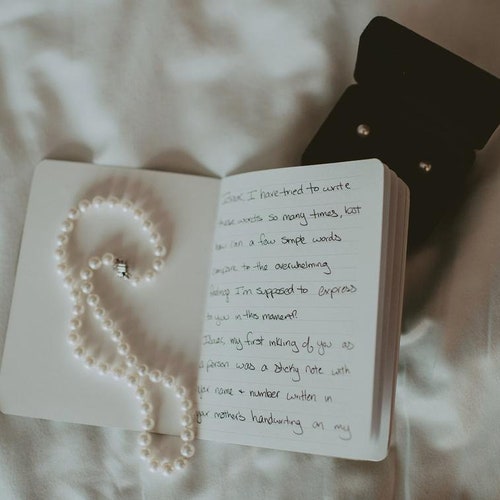 Isaac, I have tried to write
these words so many times, but
how can a few simple words
compare to the overwhelming
feelings I'm supposed to express
to you in this moment?
Isaac, my first inkling of you as
a person was a sticky note with
your name + number written in
your mother's handwriting on my